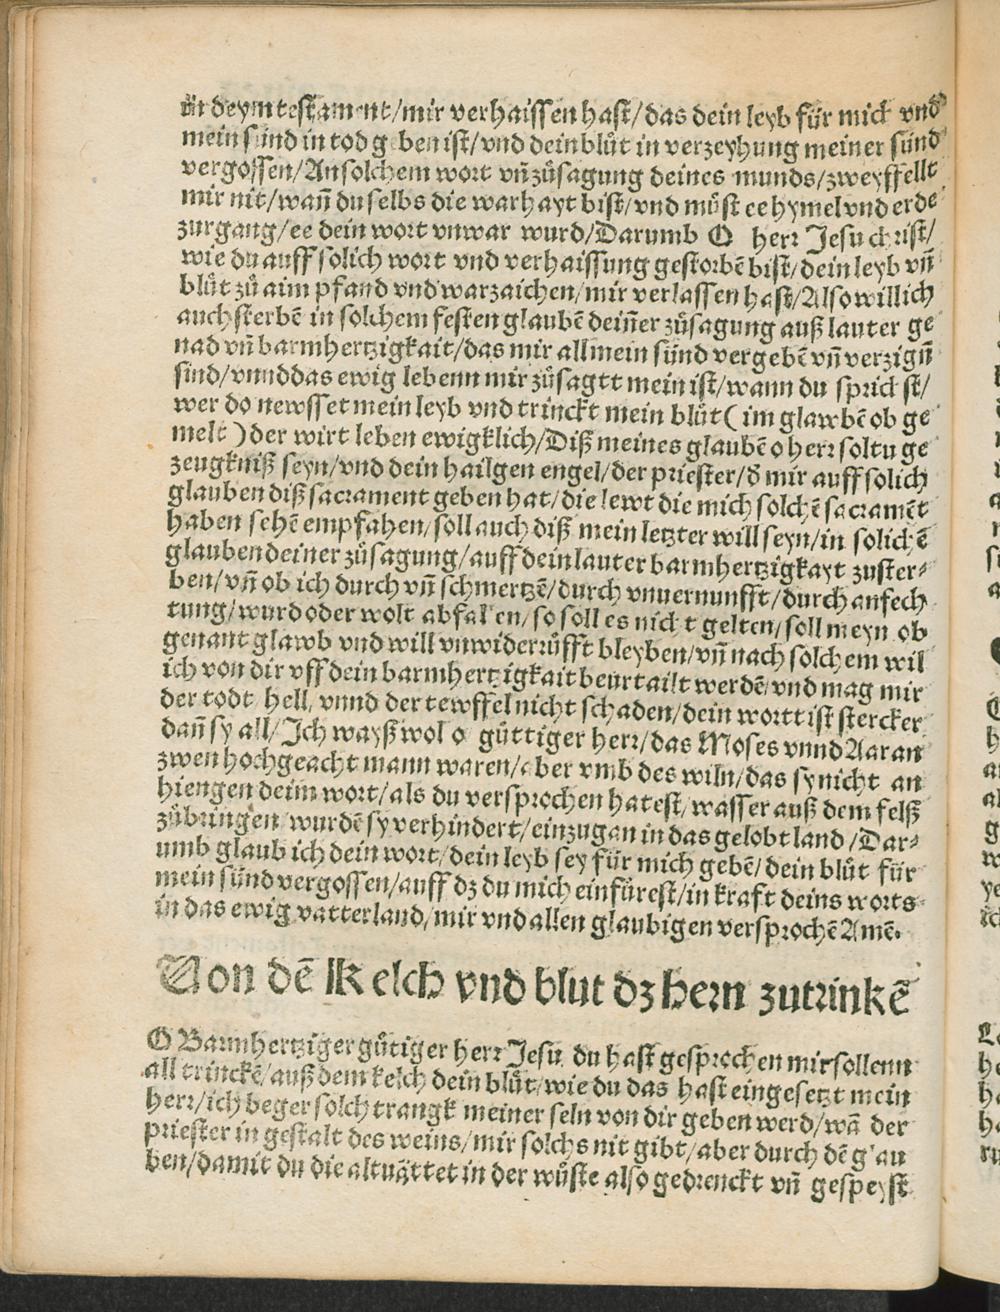 in deym testament/mir verhaissen hast/das dein leyb für mich vnd
mein sünd in tod geben ist/vnd dein blůt in verzeyhung meiner sünd
vergossen/An solchem wort vñ zůsagung deines munds/zweyffellt
mir nit/wañ du selbs die warhayt bist/vnd můst ee hymel vnd erde
zurgang/ee dein wort vnwar wurd/Darumb O herr Jesu christ/
wie du auff solich wort vnd verhaissung gestorbē bist/dein leyb vñ
blůt zů aim pfand vnd warzaichen/mir verlassen hast/Also will ich
auch sterbē in solchem festen glaubē deiñer zůsagung auß lauter ge
nad vñ barmhertzigkait/das mir all mein sünd vergebē vñ verzigñ
sind/vnnd das ewig lebenn mir zůsagtt mein ist/wann du sprichst/
wer do newsset mein leyb vnd trinckt mein blůt (im glawbē ob ge
melt) der wirt leben ewigklich/Diß meines glaubē o herr solt u ge
zeugkniß seyn/vnd dein hailgen engel/der priester/d̄ mir auff solich
glauben diß sacrament geben hat/die lewt die mich solchē sacramēt
haben sehē empfahen/soll auch diß mein letzter will seyn/in solichē
glauben deiner zůsagung/auff dein lauter barmhertzigkayt zuster⸗
ben/vñ ob ich durch vñ schmertzē/durch vnuernunfft/durch anfech
tung/wurd oder wolt abfallen/so soll es nicht gelten/soll meyn ob
genant glawb vnd will vnwiderrůfft bleyben/vñ nach solchem wil
ich von dir vff dein barmhertzigkait beurtailt werdē/vnd mag mir
der todt hell/vnnd der tewffel nicht schaden/dein wortt ist stercker
dañ sy all/Ich wayß wol o güttiger herr/das Moses vnnd Aaran
zwen hochgeacht mann waren/aber vmb des wiln/das sy nicht an
hiengen deim wort/als du versprochen hatest/wasser auß dem felß
zůbringen/wurdē sy verhindert/einzugan in das gelobt land/Dar⸗
umb glaub ich dein wort/dein leyb sey für mich gebē/dein blůt für
mein sünd vergossen/auff dz du mich einfürest/in kraft deins worts
in das ewig vatterland/mir vnd allen glaubigen versprochē Amē.
Von dē Kelch vnd blut dz hern zutrinkē
O Barmhertziger gůtiger herr Jesu du hast gesprochen mir sollenn
all trinckē/auß dem kelch dein blůt/wie du das hast eingesetzt mein
herr/ich beger solch trangk meiner seln von dir geben werd/wā der
priester in gestalt des weins/mir solchs nit gibt/aber durch dē glau
ben/damit du die altuättet in der wüste also gedrenckt vñ gespeyst